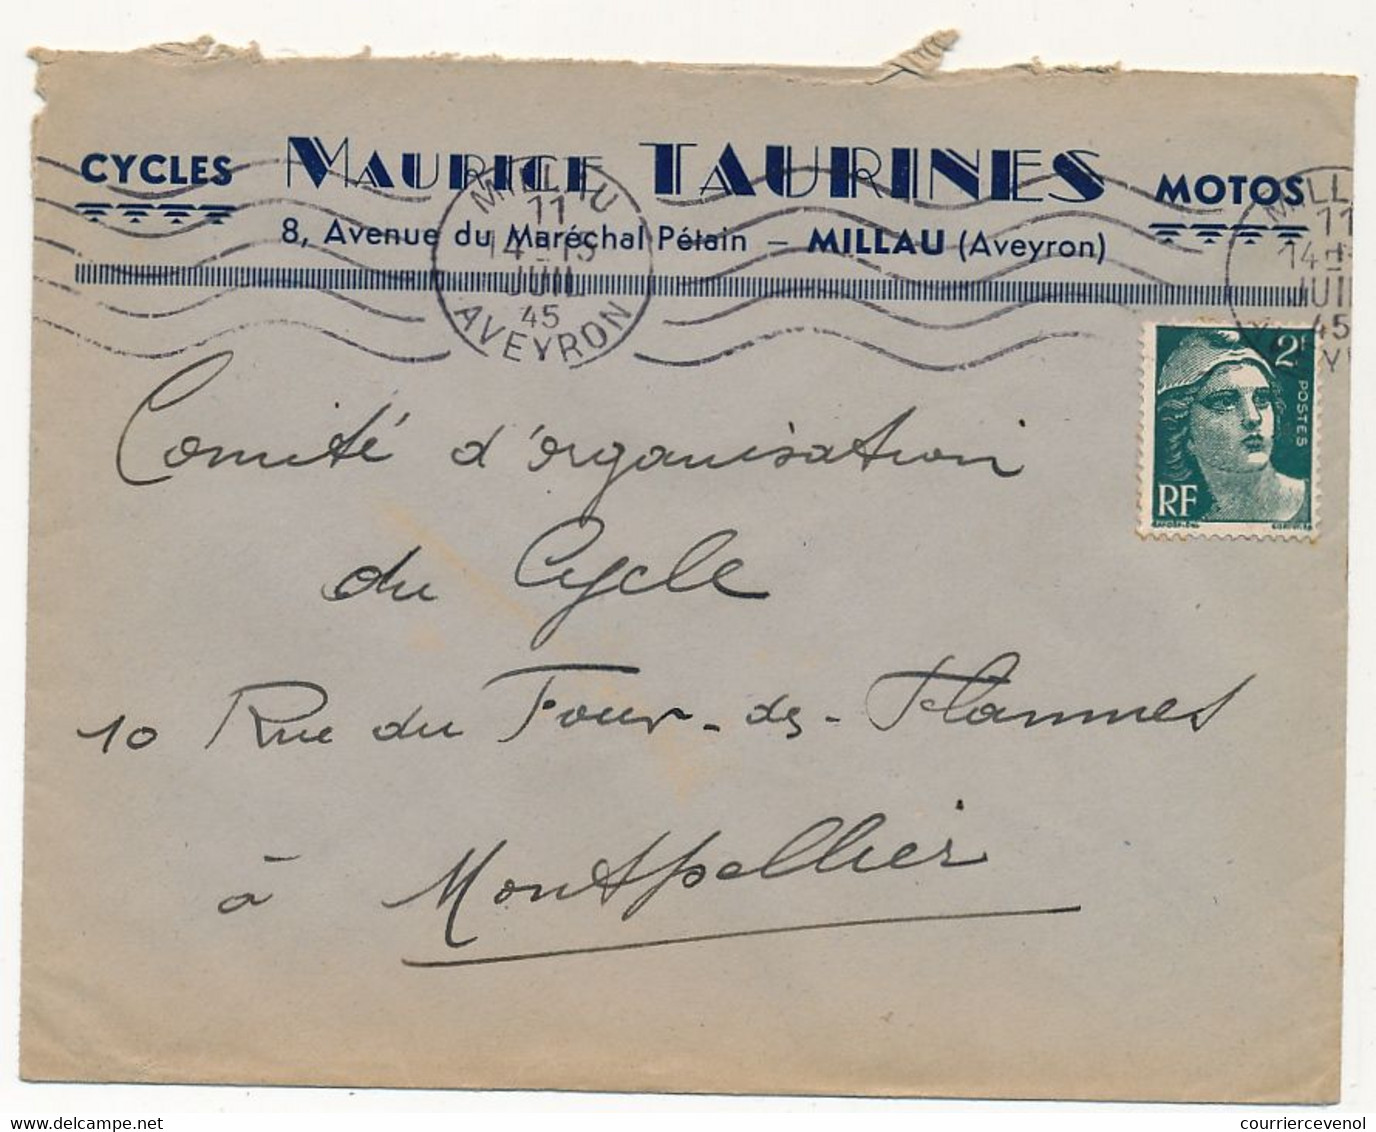 CYCLES MAURICE TAURINES MOTOS
8, Avenue du Maréchal Pétain – MILLAU (Aveyron)
MILLAU
11
14 H 15
JUIL
45
AVEYRON
MILL
11
14 H
JUIL
45
2F
POSTES
RF
Comité d'organisation
du Cycle
10 Rue du Four-des-Flammes
à Montpellier
www.delcampe.net
courriercevenol